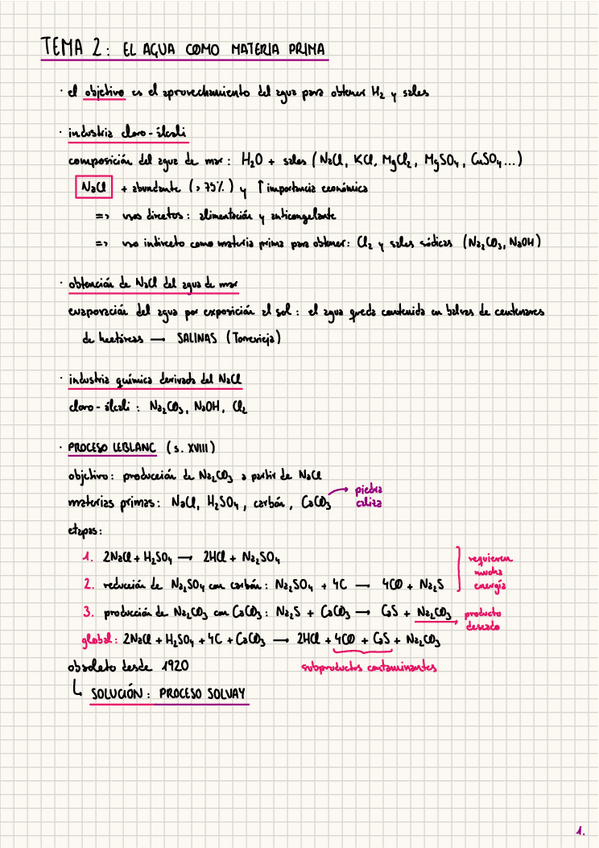 TEMA 2: EL AGUA COMO MATERIA PRIMA
· el objetivo es el aprovechamiento del agua para obtener H₂ y sales
· industria cloro-álcali
composición del agua de mar: H₂O + sales (NaCl, KCl, MgCl₂, MgSO₄, CaSO₄...)
NaCl + abundante (>75%) y ↑ importancia económica
=> usos directos: alimentación y anticongelante
=> uso indirecto como materia prima para obtener: Cl₂ y sales sódicas (Na₂CO₃, NaOH)
· obtención de NaCl del agua de mar
evaporación del agua por exposición al sol: el agua queda contenida en balsas de centenares
de hectáreas → SALINAS (Torrevieja)
· industria química derivada del NaCl
cloro-álcali: Na₂CO₃, NaOH, Cl₂
· PROCESO LEBLANC (s. XVIII)
objetivo: producción de Na₂CO₃ a partir de NaCl
materias primas: NaCl, H₂SO₄, carbón, CaCO₃ → piedra caliza
etapas:
1. 2NaCl + H₂SO₄ → 2HCl + Na₂SO₄
2. reducción de Na₂SO₄ con carbón: Na₂SO₄ + 4C → 4CO + Na₂S
requieren mucha energía
3. producción de Na₂CO₃ con CaCO₃: Na₂S + CaCO₃ → CaS + Na₂CO₃ → producto deseado
global: 2NaCl + H₂SO₄ + 4C + CaCO₃ → 2HCl + 4CO + CaS + Na₂CO₃
obsoleto desde 1920 subproductos contaminantes
↳ SOLUCIÓN: PROCESO SOLVAY
1.